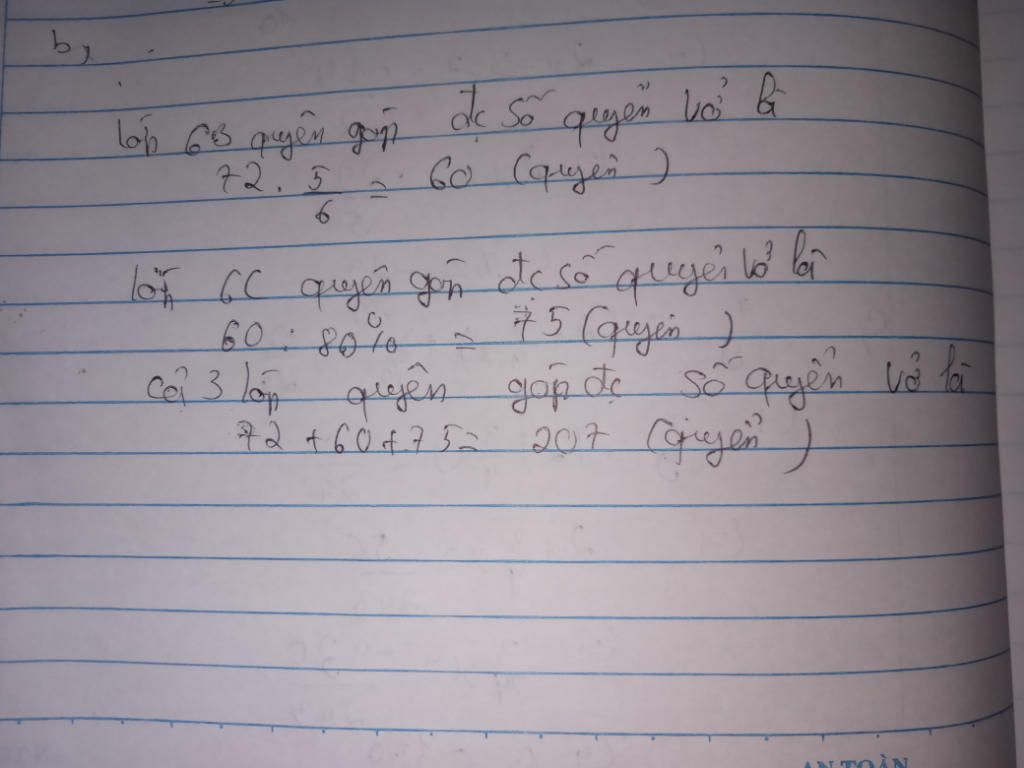 b,
lớp 6B quyên góp đc số quyển vở là
72 . 5/6 = 60 (quyển)
lớp 6C quyên góp đc số quyển vở là
60 : 80% = 75 (quyển)
cả 3 lớp quyên góp đc số quyển vở là
72 + 60 + 75 = 207 (quyển)
AN TOÀN